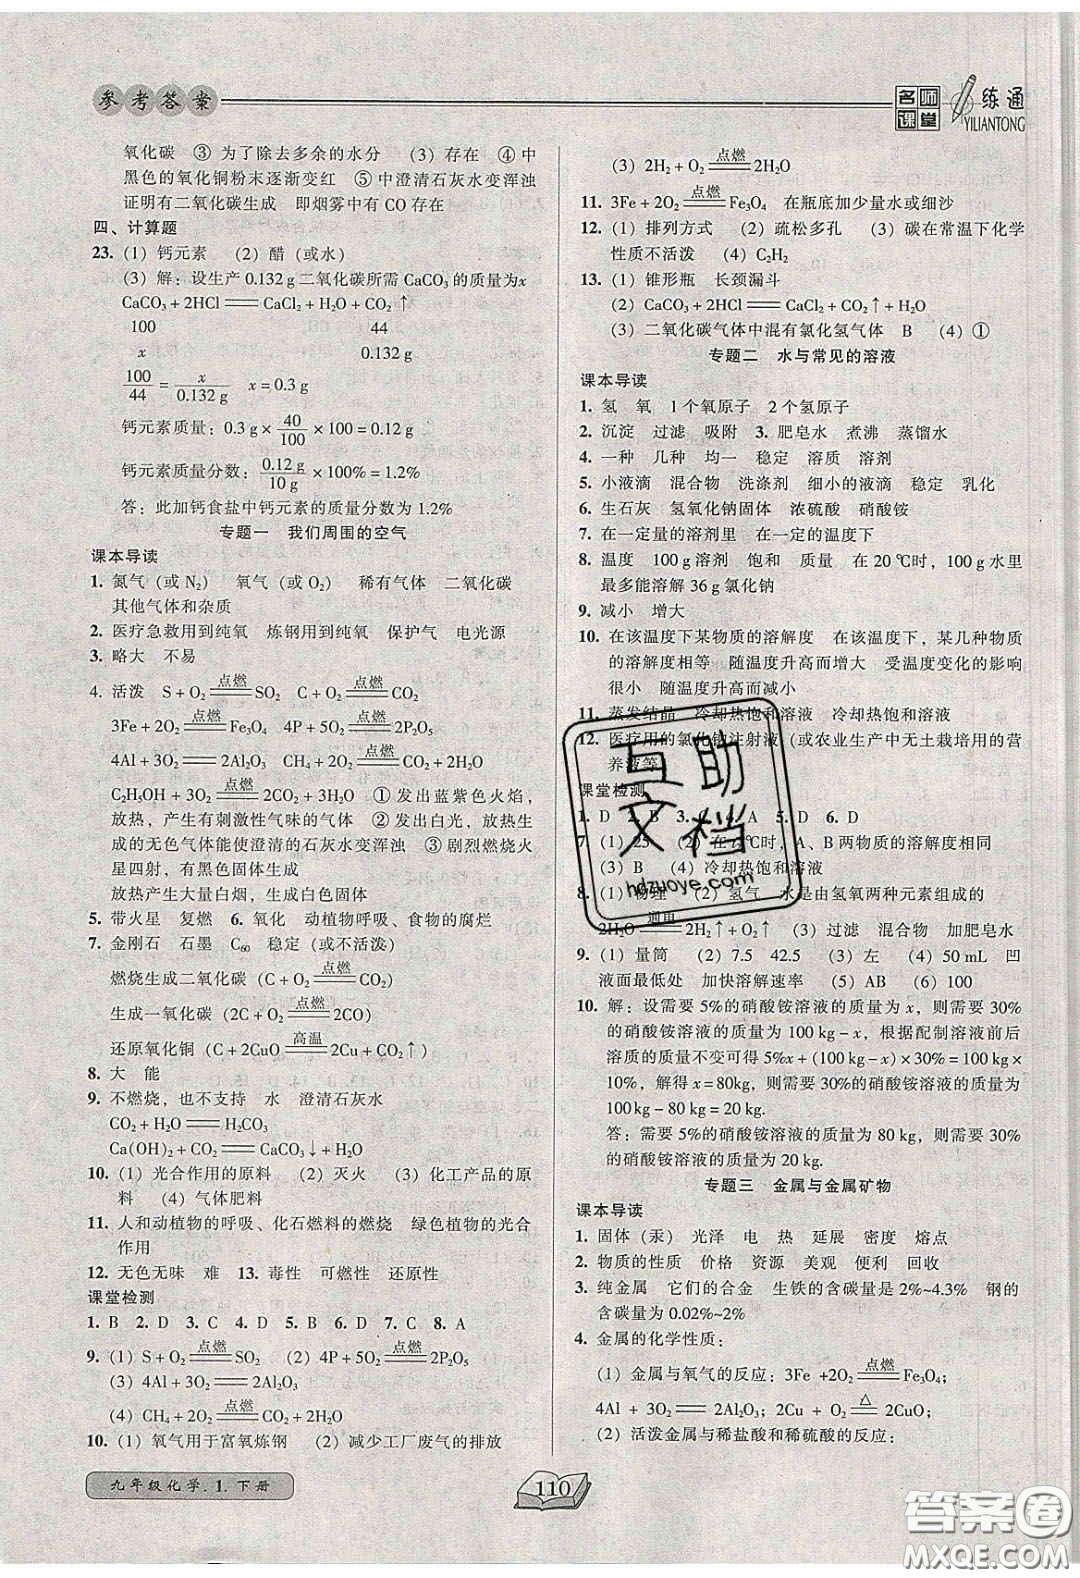 参考答案
名师课堂
一练通
YILIANTONG
氧化碳 ③ 为了除去多余的水分 (3) 存在 ④ 中
黑色的氧化铜粉末逐渐变红 ⑤ 中澄清石灰水变浑浊
证明有二氧化碳生成 即烟雾中有 CO 存在
四、计算题
23. (1) 钙元素 (2) 醋 (或水)
(3) 解：设生产 0.132 g 二氧化碳所需 CaCO₃ 的质量为x
CaCO₃ + 2HCl ══ CaCl₂ + H₂O + CO₂ ↑
100 44
x 0.132 g
100/44 = x/0.132 g x = 0.3 g
钙元素质量：0.3 g × 40/100 × 100 = 0.12 g
钙元素质量分数：0.12 g/10 g × 100% = 1.2%
答：此加钙食盐中钙元素的质量分数为 1.2%
专题一 我们周围的空气
课本导读
1. 氮气 (或 N₂) 氧气 (或 O₂) 稀有气体 二氧化碳
其他气体和杂质
2. 医疗急救用到纯氧 炼钢用到纯氧 保护气 电光源
3. 略大 不易
4. 活泼 S + O₂ ═点燃═ SO₂ C + O₂ ═点燃═ CO₂
3Fe + 2O₂ ═点燃═ Fe₃O₄ 4P + 5O₂ ═点燃═ 2P₂O₅
4Al + 3O₂ ══ 2Al₂O₃ CH₄ + 2O₂ ═点燃═ CO₂ + 2H₂O
C₂H₅OH + 3O₂ ═点燃═ 2CO₂ + 3H₂O ① 发出蓝紫色火焰，
放热，产生有刺激性气味的气体 ② 发出白光，放热生
成的无色气体能使澄清的石灰水变浑浊 ③ 剧烈燃烧火
星四射，有黑色固体生成
放热产生大量白烟，生成白色固体
5. 带火星 复燃 6. 氧化 动植物呼吸、食物的腐烂
7. 金刚石 石墨 C₆₀ 稳定 (或不活泼)
燃烧生成二氧化碳 (C + O₂ ═点燃═ CO₂)
生成一氧化碳 (2C + O₂ ═点燃═ 2CO)
还原氧化铜 (C + 2CuO ═高温═ 2Cu + CO₂↑)
8. 大 能
9. 不燃烧，也不支持 水 澄清石灰水
CO₂ + H₂O ══ H₂CO₃
Ca(OH)₂ + CO₂ ══ CaCO₃↓ + H₂O
10. (1) 光合作用的原料 (2) 灭火 (3) 化工产品的原
料 (4) 气体肥料
11. 人和动植物的呼吸、化石燃料的燃烧 绿色植物的光合
作用
12. 无色无味 难 13. 毒性 可燃性 还原性
课堂检测
1. B 2. D 3. C 4. D 5. B 6. D 7. C 8. A
9. (1) S + O₂ ═点燃═ SO₂ (2) 4P + 5O₂ ═点燃═ 2P₂O₅
(3) 4Al + 3O₂ ══ 2Al₂O₃
(4) CH₄ + 2O₂ ═点燃═ CO₂ + 2H₂O
10. (1) 氧气用于富氧炼钢 (2) 减少工厂废气的排放
(3) 2H₂ + O₂ ═点燃═ 2H₂O
11. 3Fe + 2O₂ ═点燃═ Fe₃O₄ 在瓶底加少量水或细沙
12. (1) 排列方式 (2) 疏松多孔 (3) 碳在常温下化学
性质不活泼 (4) C₂H₂
13. (1) 锥形瓶 长颈漏斗
(2) CaCO₃ + 2HCl ══ CaCl₂ + CO₂↑ + H₂O
(3) 二氧化碳气体中混有氯化氢气体 B (4) ①
专题二 水与常见的溶液
课本导读
1. 氢 氧 1 个氧原子 2 个氢原子
2. 沉淀 过滤 吸附 3. 肥皂水 煮沸 蒸馏水
4. 一种 几种 均一 稳定 溶质 溶剂
5. 小液滴 混合物 洗涤剂 细小的液滴 稳定 乳化
6. 生石灰 氢氧化钠固体 浓硫酸 硝酸铵
7. 在一定量的溶剂里 在一定的温度下
8. 温度 100 g 溶剂 饱和 质量 在 20 ℃时，100 g 水里
最多能溶解 36 g 氯化钠
9. 减小 增大
10. 在该温度下某物质的溶解度 在该温度下，某几种物质
的溶解度相等 随温度升高而增大 受温度变化的影响
很小 随温度升高而减小
11. 蒸发结晶 冷却热饱和溶液 冷却热饱和溶液
12. 医疗用的氯化钠注射液 (或农业生产中无土栽培用的营
养液等
课堂检测
1. D 2. B 3. C 4. A 5. D 6. D
7. (1) 25 (2) 在 ℃时，A、B 两物质的溶解度相同
(3) B (4) 冷却热饱和溶液
8. (1) 物理 (2) 氢气 水是由氢氧两种元素组成的
2H₂O ═通电═ 2H₂↑ + O₂↑ (3) 过滤 混合物 加肥皂水
9. (1) 量筒 (2) 7.5 42.5 (3) 左 (4) 50 mL 凹
液面最低处 加快溶解速率 (5) AB (6) 100
10. 解：设需要 5%的硝酸铵溶液的质量为 x，则需要 30%
的硝酸铵溶液的质量为 100 kg − x，根据配制溶液前后
溶质的质量不变可得 5%x + (100 kg − x) × 30% = 100 kg ×
10%，解得 x = 80kg，则需要 30%的硝酸铵溶液的质量为
100 kg − 80 kg = 20 kg.
答：需要 5%的硝酸铵溶液的质量为 80 kg，则需要 30%
的硝酸铵溶液的质量为 20 kg.
专题三 金属与金属矿物
课本导读
1. 固体 (汞) 光泽 电 热 延展 密度 熔点
2. 物质的性质 价格 资源 美观 便利 回收
3. 纯金属 它们的合金 生铁的含碳量是 2%~4.3% 钢的
含碳量为 0.02%~2%
4. 金属的化学性质：
(1) 金属与氧气的反应：3Fe +2O₂ ═点燃═ Fe₃O₄;
4Al + 3O₂ ══ 2Al₂O₃; 2Cu + O₂ ═△═ 2CuO;
(2) 活泼金属与稀盐酸和稀硫酸的反应:
九年级化学. 1. 下册
110
互助文档
hdzuoye.com
答案圈
MXQE.COM